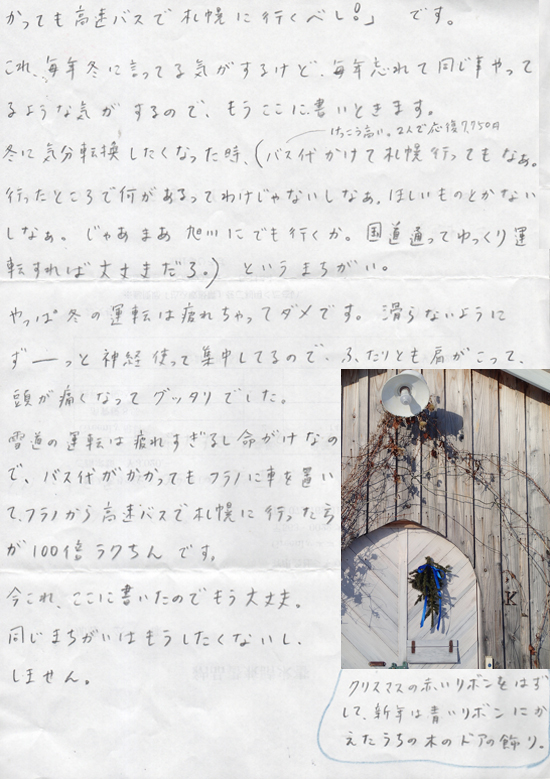 かっても高速バスで札幌に行くべし!」 です。
これ、毎年冬に言ってる気がするけど、毎年忘れて同じ事やって
るような気がするので、もうここに書いときます。
けっこう高い。2人で応復7,750円
冬に気分転換したくなった時、(バス代かけて札幌行ってもなぁ。
行ったところで何があるってわけじゃないしなぁ。ほしいものとかない
しなぁ。じゃあまあ 旭川にでも行くか。国道通ってゆっくり運
転すれば大丈夫だろ。) というまちがい。
やっぱ冬の運転は疲れちゃってダメです。滑らないように
ず——っと神経使って集中してるので、ふたりとも肩がこって、
頭が痛くなってグッタリでした。
雪道の運転は疲れすぎるし命がけなの
で、バス代がかかってもフラノに車を置い
て、フラノから高速バスで札幌に行った方
が100倍ラクちんです。
今これ、ここに書いたのでもう大丈夫。
同じまちがいはもうしたくないし、
しません。
K
クリスマスの赤いリボンをはず
して、新年は青いリボンにか
えたうちの木のドアの飾り。